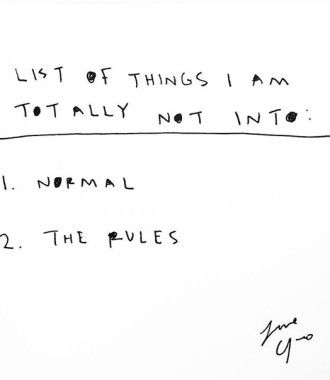 LIST OF THINGS I AM
TOTALLY NOT INTO:
1. NORMAL
2. THE RULES
love